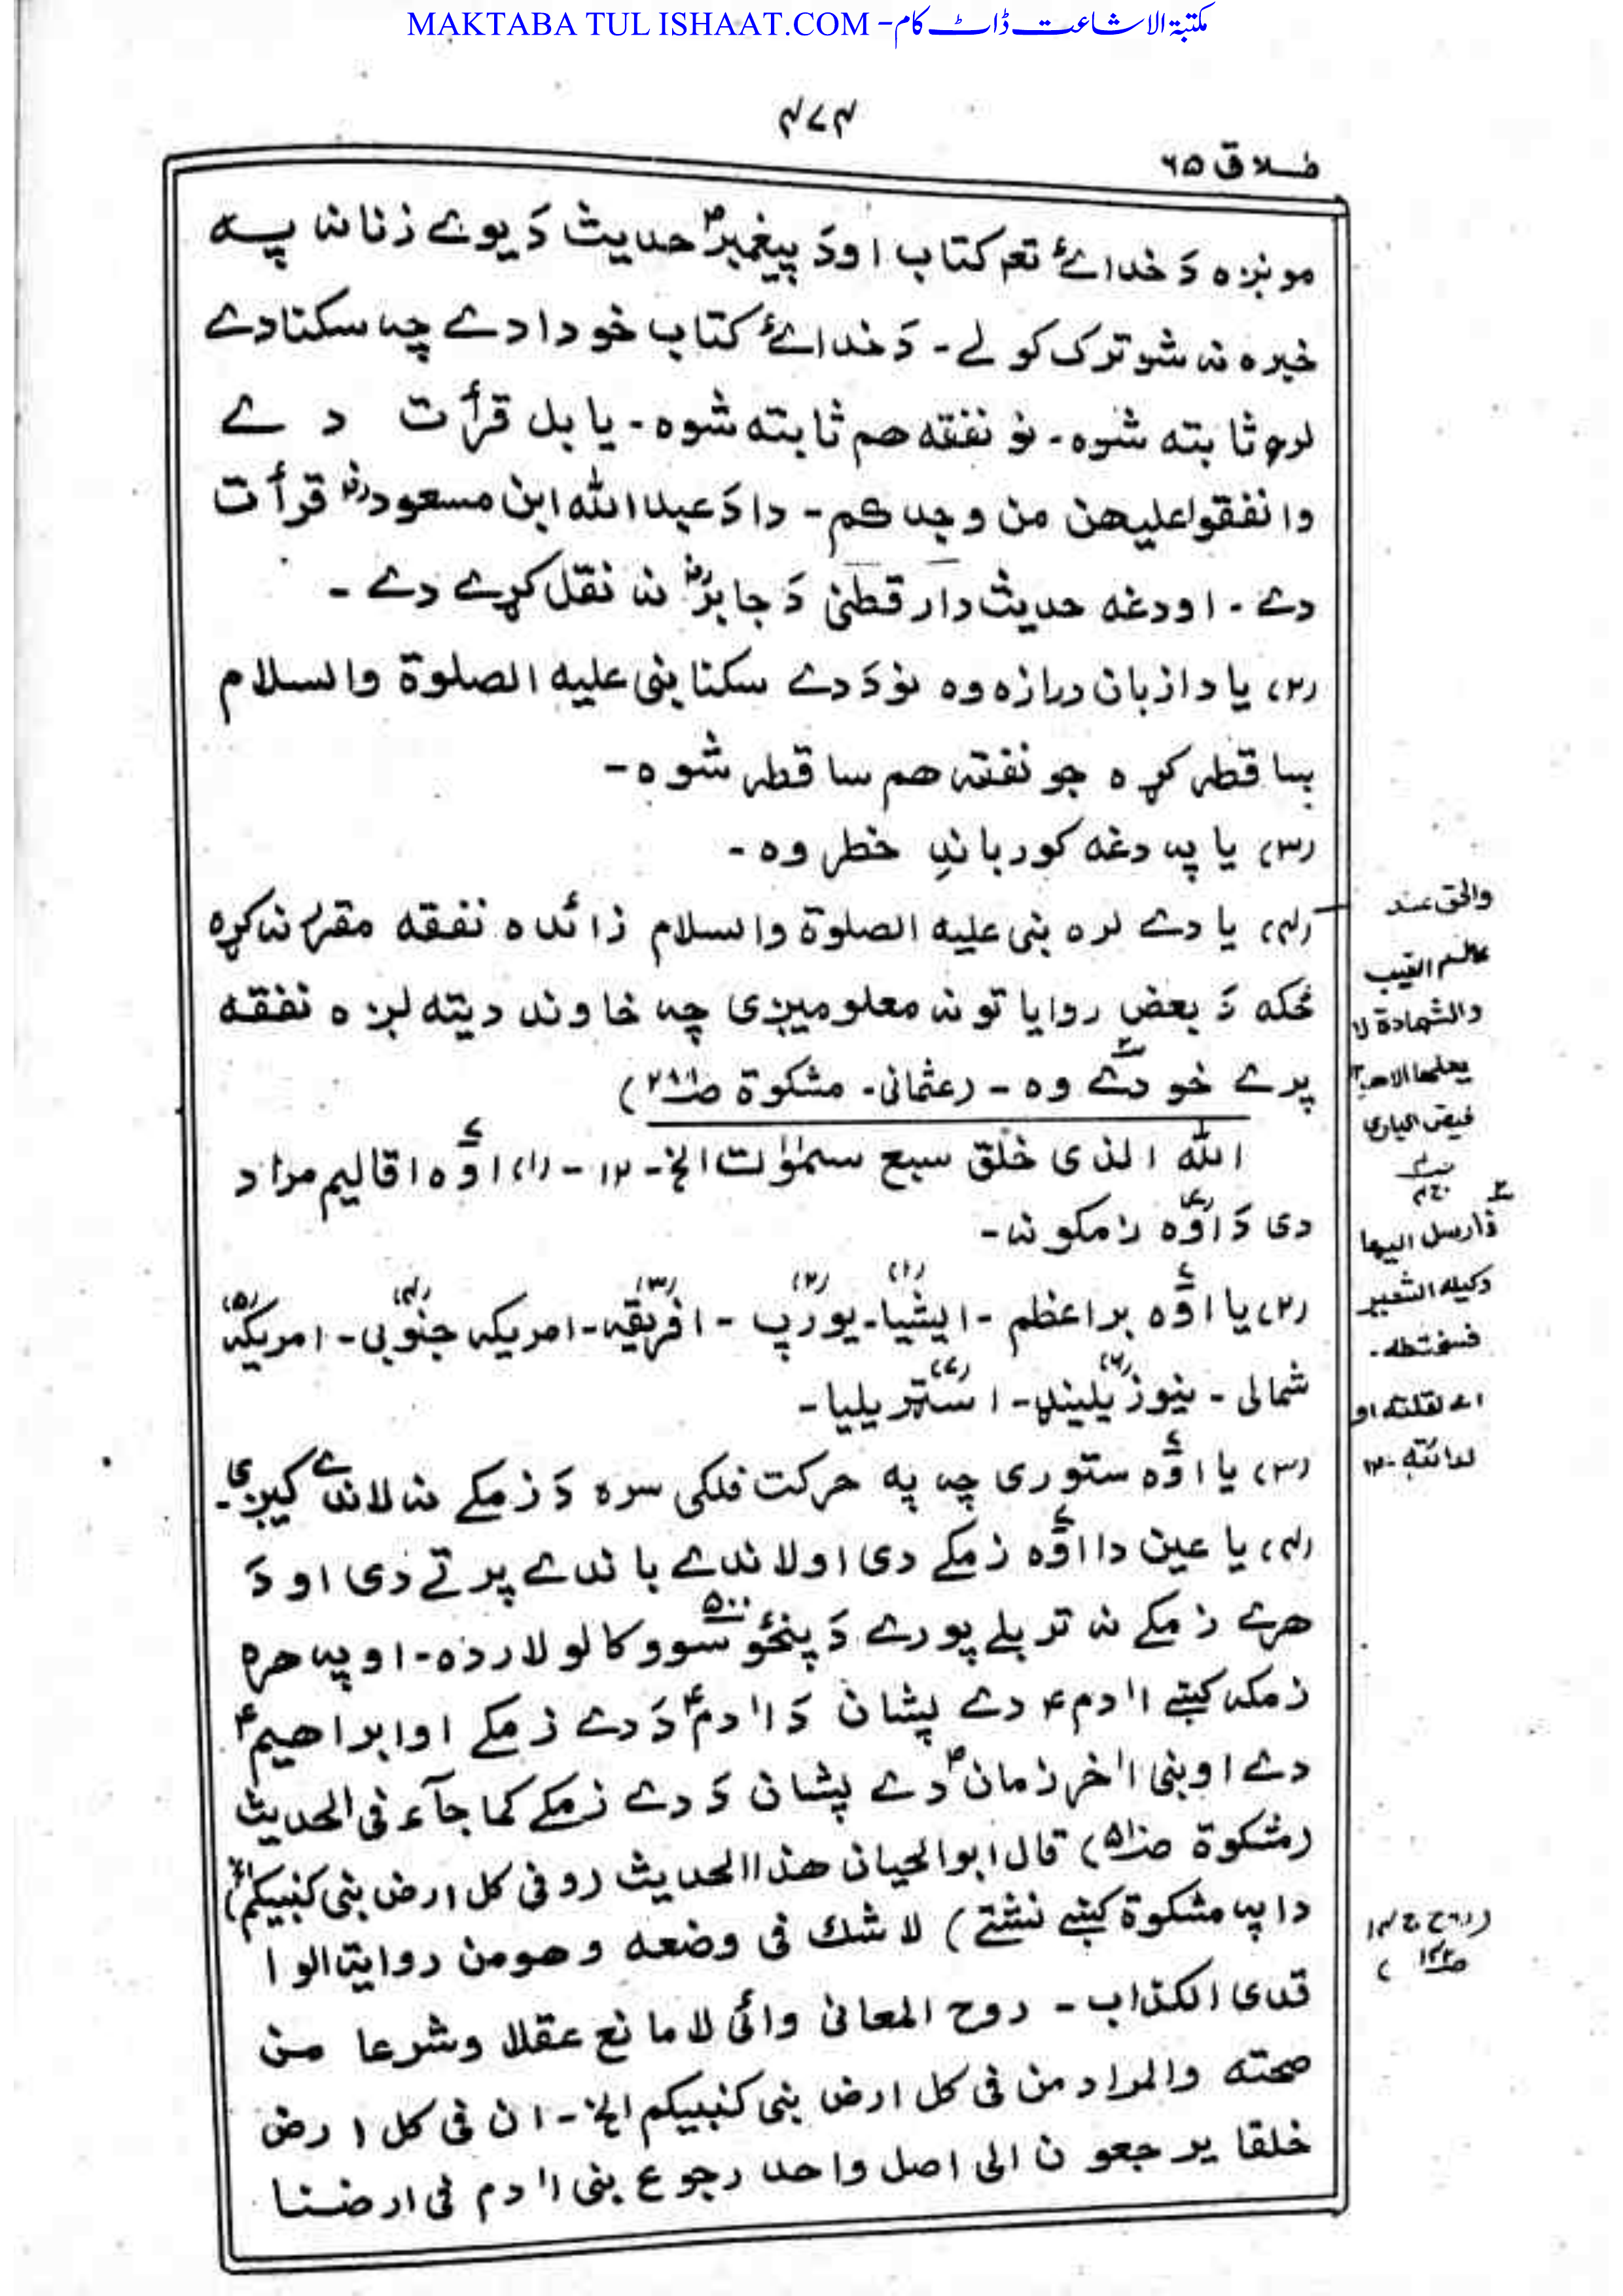 MAKTABA TUL ISHAAT.COM -مکتبۃ الاشاعت ڈاٹ کام
۴۷۴
طلاق ۶۵
مونږہ دَ خدائے تعہ کتاب اودَ پیغمبرؐ حدیث دَ یوے زنانہ پہ
خبرہ نہ شو ترک کولے - دَ خدائے کتاب خو دا دے چہ سکنا دے
لرہ ثابتہ شوہ - نو نفقہ هم ثابتہ شوہ - یا بل قرأت دے
وانفقوا علیهن من وجدکم - دا دَ عبداللہ ابن مسعودؓ قرأت
دے - اودغہ حدیث دارقطنی دَ جابرؓ نہ نقل کړے دے -
(۲) یا دا زبان درازہ وہ نو دَ دے سکنا نبی علیہ الصلوۃ والسلام
ساقطہ کړہ جو نفقہ هم ساقطہ شوہ -
(۳) یا پہ دغہ کور باندِ خطر وہ -
(۴) یا دے لرہ نبی علیہ الصلوۃ والسلام زائدہ نفقہ مقرر نہ کړہ
ځکہ دَ بعض روایاتو نہ معلومیږی چہ خاوند دیتہ لږہ نفقہ
پرے خودے وہ - (عثمانی - مشکوۃ ص۲۸۸)
اللہ الذی خلق سبع سمٰوٰت الخ - ۱۲ - (۱) اوٗہ اقالیم مراد
دی دَ اوٗہ زمکو نہ -
(۲) یا اوٗہ براعظم - ایشیا - یورپ - افریقہ - امریکہ جنوبی - امریکہ
شمالی - نیوزیلینډ - استریلیا -
(۳) یا اوٗہ ستوری چہ پہ حرکت فلکی سرہ دَ زمکے نہ لاندے کیږی -
(۴) یا عین دا اوٗہ زمکے دی او لاندے باندے پرتے دی او دَ
هرے زمکے نہ تر بلے پورے دَ پنځو سوو ۵۰۰ کالو لار دہ - او پہ هرہ
زمکہ کښے اٰدم ؑ دے پشان دَ اٰدم ؑ دَ دے زمکے او ابراهیم ؑ
دے او نبی اٰخر زمان ؐ دے پشان دَ دے زمکے کما جآء فی الحدیث
(مشکوۃ ص۵۱۰) قال ابو الحیان هذا الحدیث (و فی کل ارض نبی کنبیکم الخ)
دا پہ مشکوۃ کښے نشتے) لا شک فی وضعه وهو من روایۃ الوا
قدی الکذاب - روح المعانی وائی لا مانع عقلا وشرعا من
صحته والمراد من فی کل ارض نبی کنبیکم الخ - ان فی کل ارض
خلقا یرجعون الی اصل واحد رجوع بنی اٰدم فی ارضنا
والحق عند
عالم الغیب
والشهادۃ لا
یعلمها الا هو ۱۲
فیض الباری
ج۴
۲
فارسل الیها
وکیله الشعیر
فسختطه -
اے لقلته او
لدائته - ۱۲
(روح ج ۱۴
ص۱۴۳)